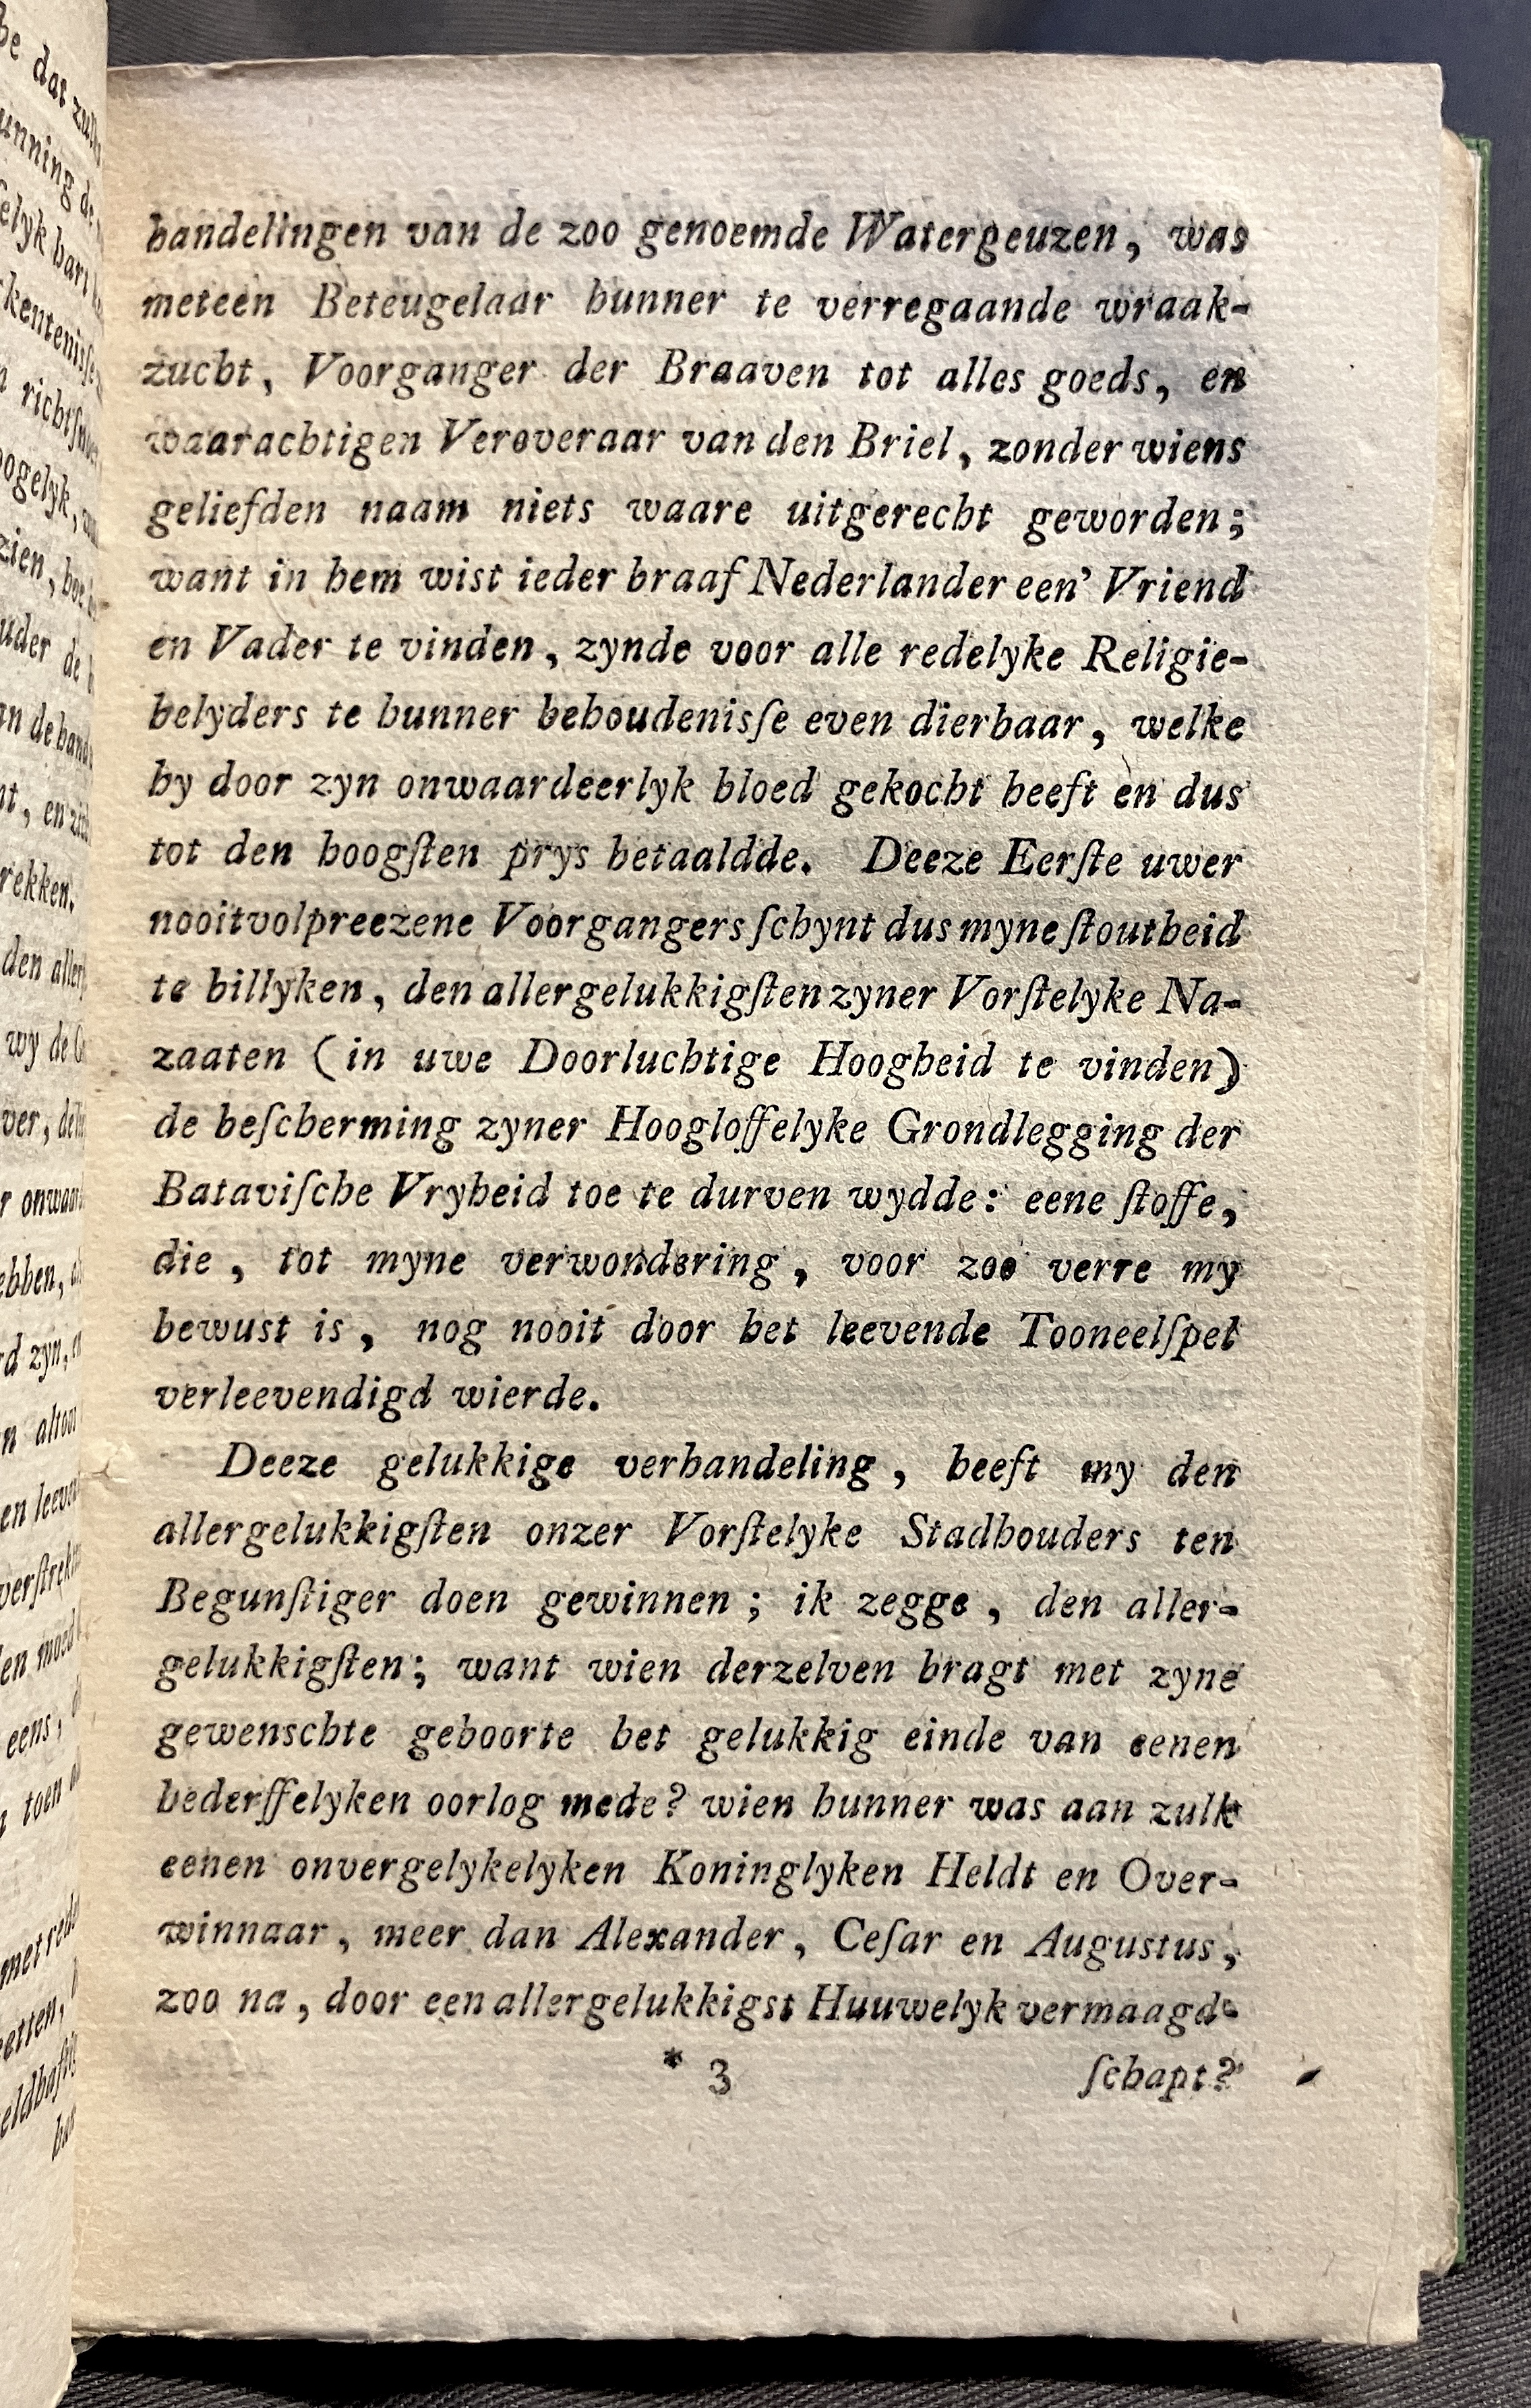 handelingen van de zoo genoemde Watergeuzen, was
meteen Beteugelaar hunner te verregaande wraak-
zucht, Voorganger der Braaven tot alles goeds, en
waarachtigen Veroveraar van den Briel, zonder wiens
geliefden naam niets waare uitgerecht geworden;
want in hem wist ieder braaf Nederlander een' Vriend
en Vader te vinden, zynde voor alle redelyke Religie-
belyders te hunner behoudenisſe even dierbaar, welke
hy door zyn onwaardeerlyk bloed gekocht heeft en dus
tot den hoogſten prys betaaldde. Deeze Eerſte uwer
nooitvolpreezene Voorgangers ſchynt dus myne ſtoutheid
te billyken, den allergelukkigſten zyner Vorſtelyke Na-
zaaten (in uwe Doorluchtige Hoogheid te vinden)
de beſcherming zyner Hoogloffelyke Grondlegging der
Bataviſche Vryheid toe te durven wydde: eene ſtoffe,
die, tot myne verwondering, voor zoo verre my
bewust is, nog nooit door het leevende Tooneelſpel
verleevendigd wierde.
Deeze gelukkige verhandeling, heeft my den
allergelukkigſten onzer Vorſtelyke Stadhouders ten
Begunſtiger doen gewinnen; ik zegge, den aller-
gelukkigſten; want wien derzelven bragt met zyne
gewenschte geboorte het gelukkig einde van eenen
bederffelyken oorlog mede? wien hunner was aan zulk
eenen onvergelykelyken Koninglyken Heldt en Over-
winnaar, meer dan Alexander, Ceſar en Augustus,
zoo na, door een allergelukkigst Huuwelyk vermaagd-
* 3 ſchapt?